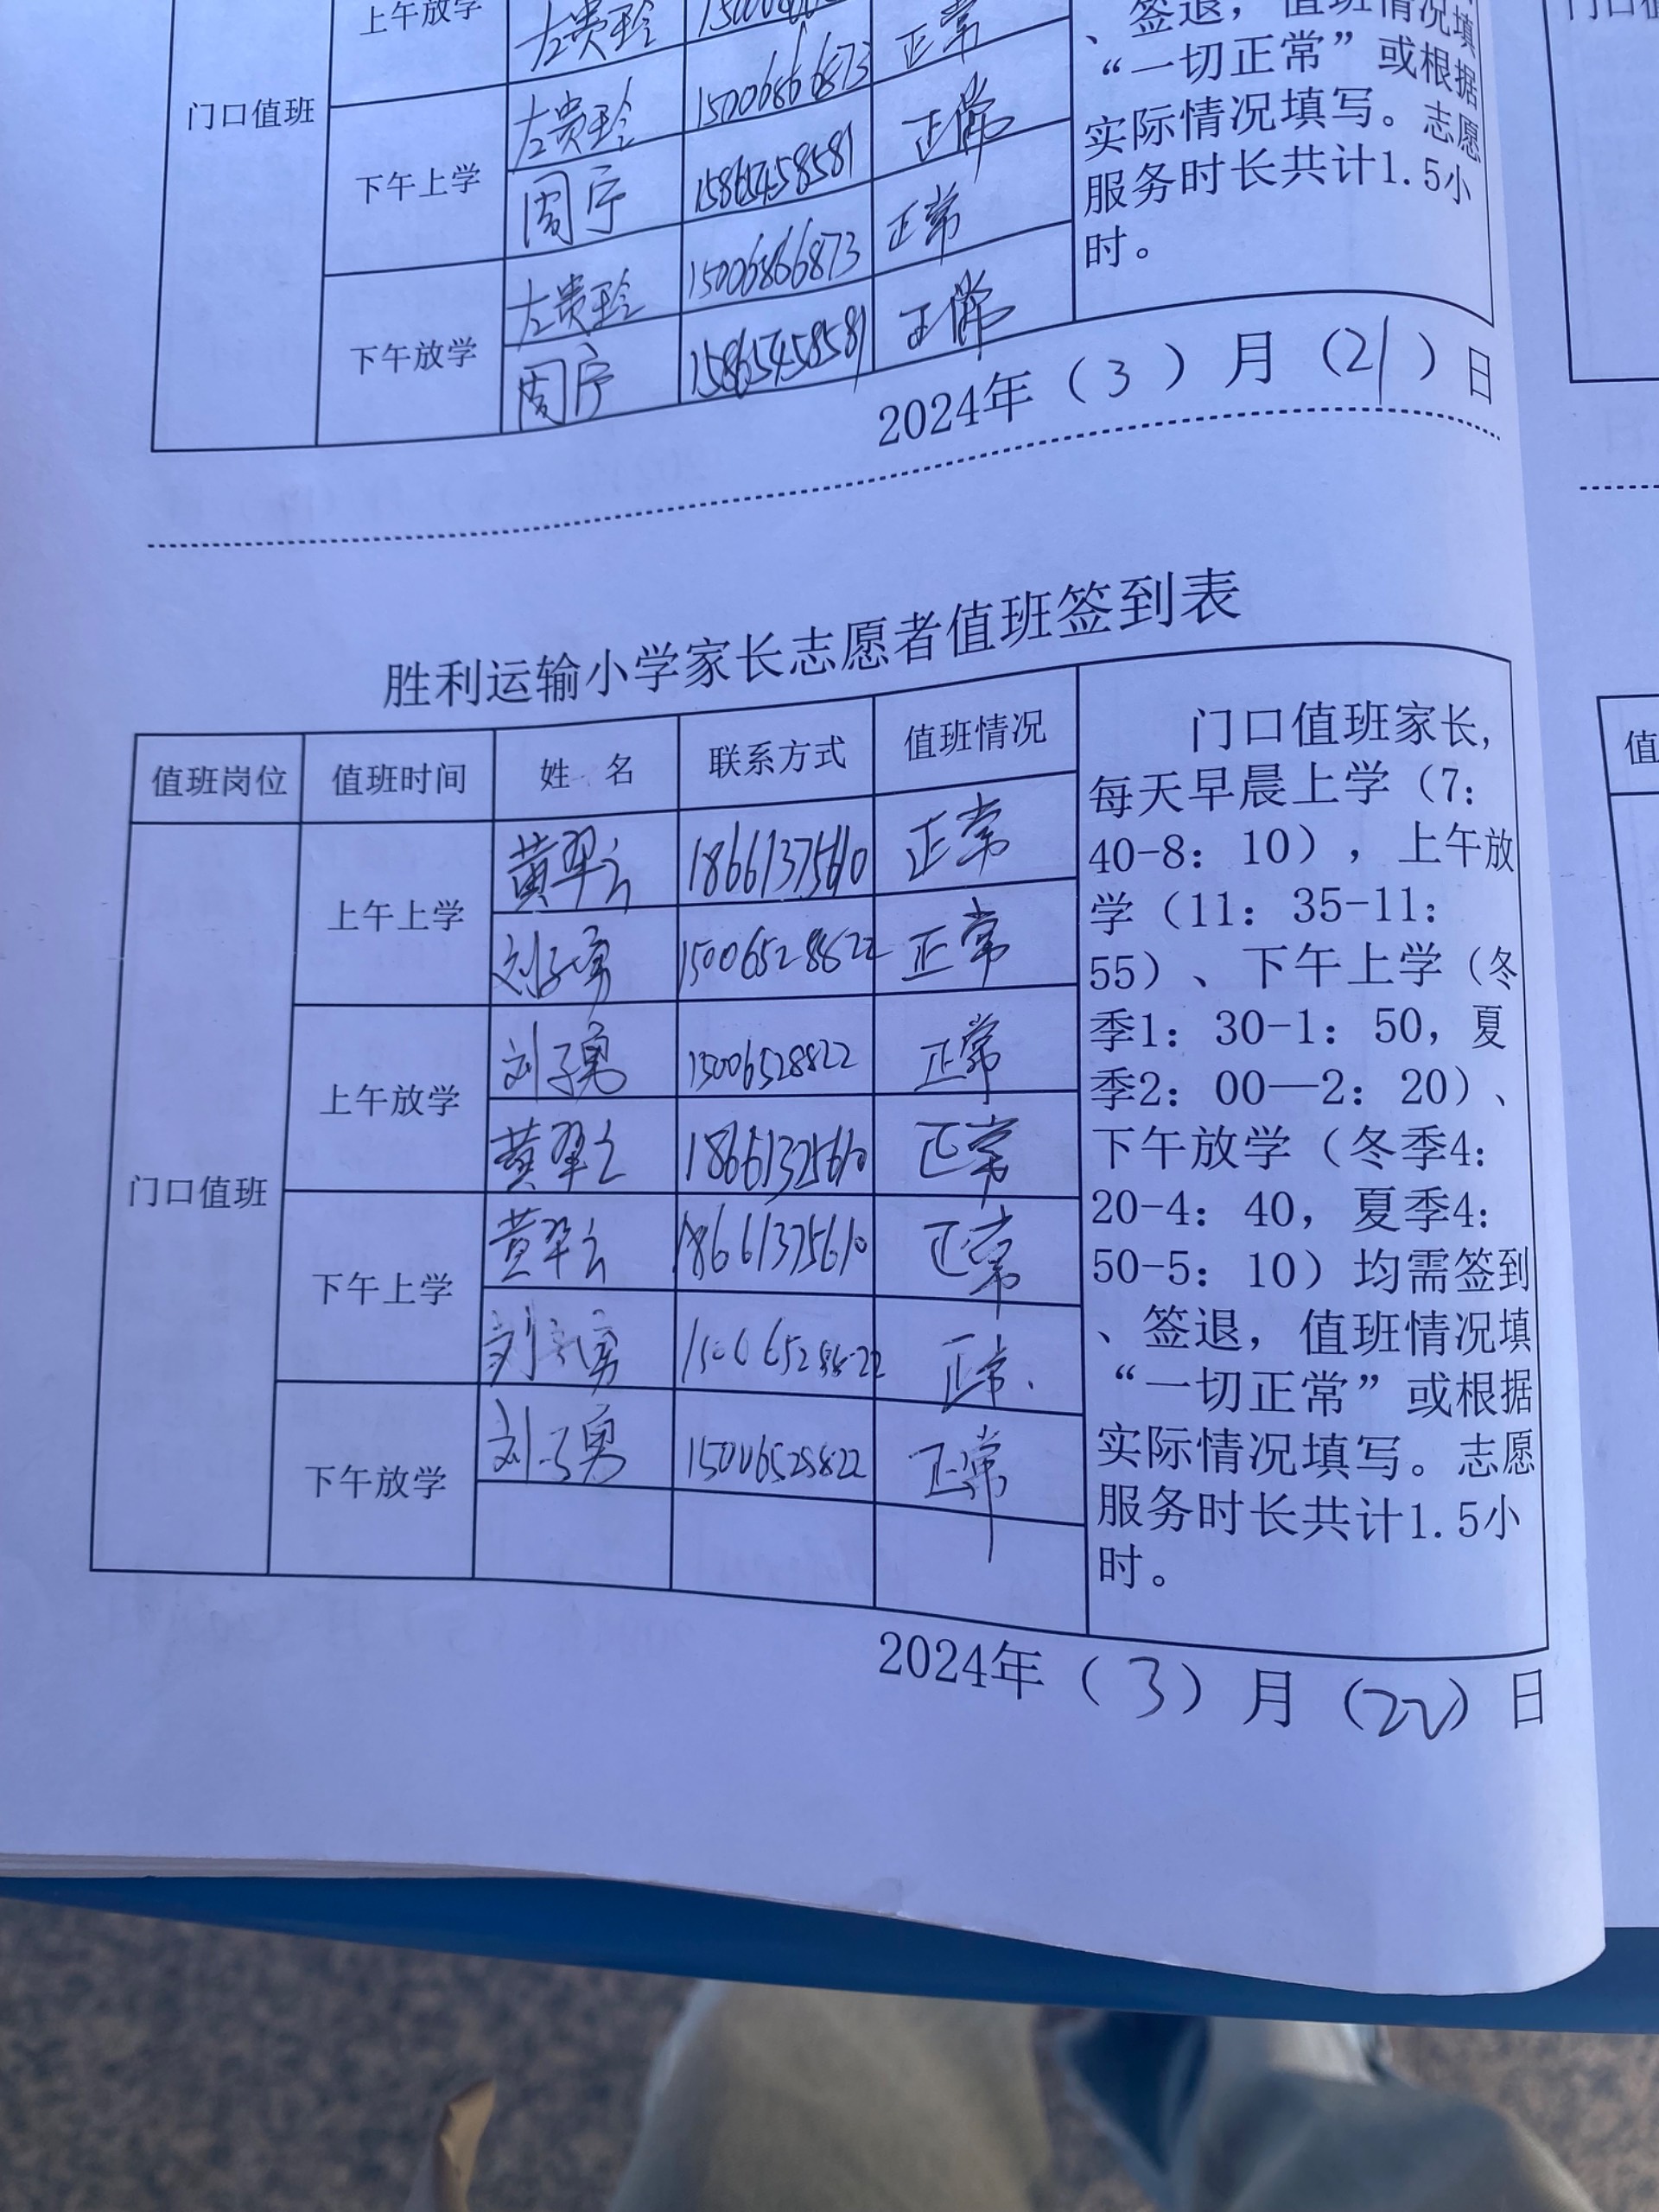 上午放学
左贵玲
正常
、签退，值班情况填
门口值班
下午上学
左贵玲 15006866873 正常
周宁 15865458581
“一切正常”或根据
实际情况填写。志愿
服务时长共计1.5小
时。
下午放学
左贵玲 15006866873 正常
周宁 15865458581 正常
2024年（3）月（21）日
胜利运输小学家长志愿者值班签到表
值班岗位 值班时间 姓 名 联系方式 值班情况
门口值班
上午上学
黄翠云 18661375610 正常
刘子勇 15006528822 正常
上午放学
刘子勇 15006528822 正常
黄翠云 18661375610 正常
下午上学
黄翠云 18661375610 正常
刘子勇 15006528822 正常.
下午放学
刘子勇 15006528822 正常
门口值班家长,
每天早晨上学（7:
40-8: 10），上午放
学（11: 35-11:
55）、下午上学（冬
季1: 30-1: 50, 夏
季2: 00—2: 20）、
下午放学（冬季4:
20-4: 40, 夏季4:
50-5: 10）均需签到
、签退，值班情况填
“一切正常”或根据
实际情况填写。志愿
服务时长共计1.5小
时。
2024年（3）月（22）日